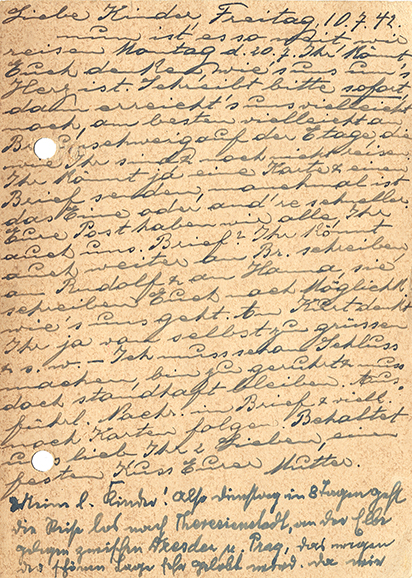 Liebe Kinder, Freitag, 10.7.42.
nun ist es so weit, wir
reisen Montag d. 20.7. Ihr könnt
Euch denken, wie's uns um's
Herz ist. Schreibt bitte sofort
dann erreicht's uns vielleicht
noch, am besten vielleicht an
Braunschweig auf der Etage, die
wo Ihr sind noch verreisen
Ihr könnt ja eine Karte & einen
Brief senden, manchmal ist
das Eine oder and're schneller.
Eure Post haben wir alle, Ihr
auch uns. Brief? Ihr könnt
auch weiter an Br. schreiben,
an Rudolf & an Hanna, sie
schreiben Euch nach Möglichk.
wie's uns geht. An Kurt denkt
Ihr ja von selbst zu grüssen
u. s. w. – Ich muss schon Schluss
machen, bin zu gerührt & muss
doch standhaft bleiben. Aus-
führl. Nachr. im Brief & viell.
noch Karten folgen. Behaltet
uns lieb Ihr 2 Lieben, ein
festen Kuss Eurer Mutter.
Meine l. Kinder! Also Dienstag in 8 Tagen geht
die Reise los nach Theresienstadt, an der Elbe
gelegen zwischen Dresden u. Prag, das wegen
der schönen Lage sehr gelobt wird. Da wir